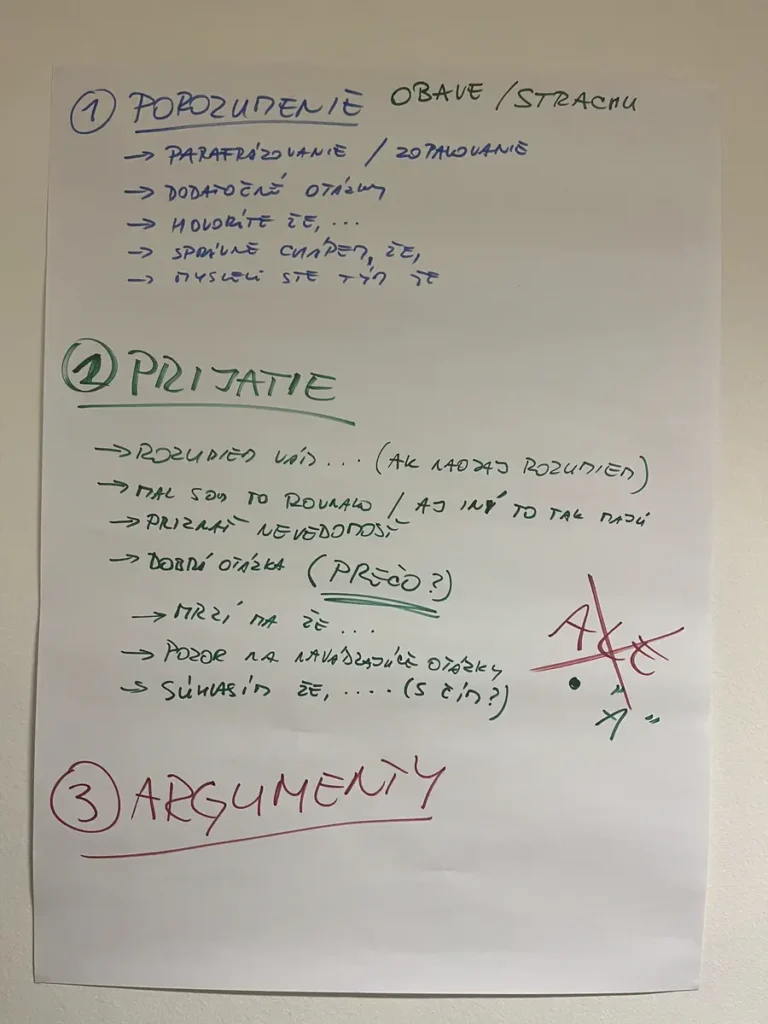 1 POROZUMENIE OBAVE / STRACHU
→ PARAFRÁZOVANIE / ZOPAKOVANIE
→ DODATOČNÉ OTÁZKY
→ HOVORÍTE ŽE, ...
→ SPRÁVNE CHÁPEM, ŽE,
→ MYSLELI STE TÝM ŽE
2 PRIJATIE
→ ROZUMIEM VÁM... (AK NAOZAJ ROZUMIEM)
→ MAL SOM TO ROVNAKO / AJ INÝ TO TAK MAJÚ
→ PRIZNAŤ NEVEDOMOSŤ
→ DOBRÁ OTÁZKA (PREČO?)
→ MRZÍ MA ŽE ...
→ POZOR NA NAVÁDZAJÚCE OTÁZKY
→ SÚHLASÍM ŽE, .... (S ČÍM?)
ALE
• "A"
3 ARGUMENTY